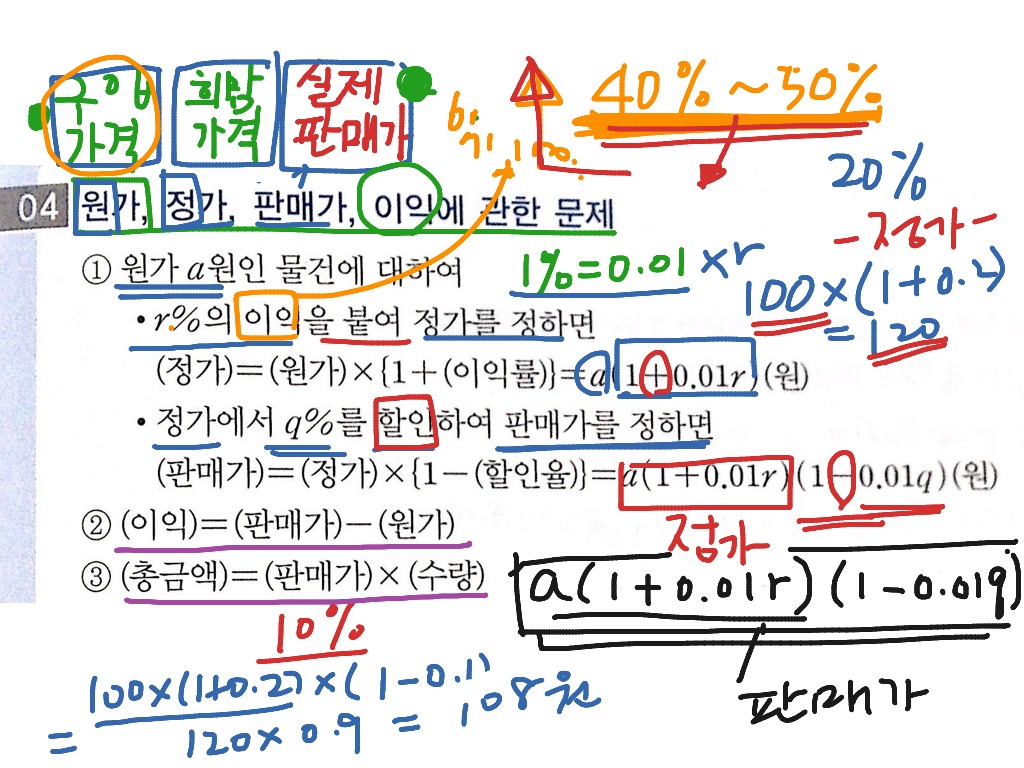 구입
가격
희망
가격
실제
판매가
40% ~ 50%
20%
- 정가 -
04 원가, 정가, 판매가, 이익에 관한 문제
① 원가 a원인 물건에 대하여
1% = 0.01 × r
100 × (1 + 0.2)
= 120
• r%의 이익을 붙여 정가를 정하면
(정가)=(원가)×{1+(이익률)}=a(1+0.01r)(원)
• 정가에서 q%를 할인하여 판매가를 정하면
(판매가)=(정가)×{1-(할인율)}=a(1+0.01r)(1-0.01q)(원)
정가
② (이익)=(판매가)-(원가)
③ (총금액)=(판매가)×(수량)
a(1+0.01r)(1-0.01q)
판매가
10%
100×(1+0.2)×(1-0.1)
= 120×0.9 = 108원